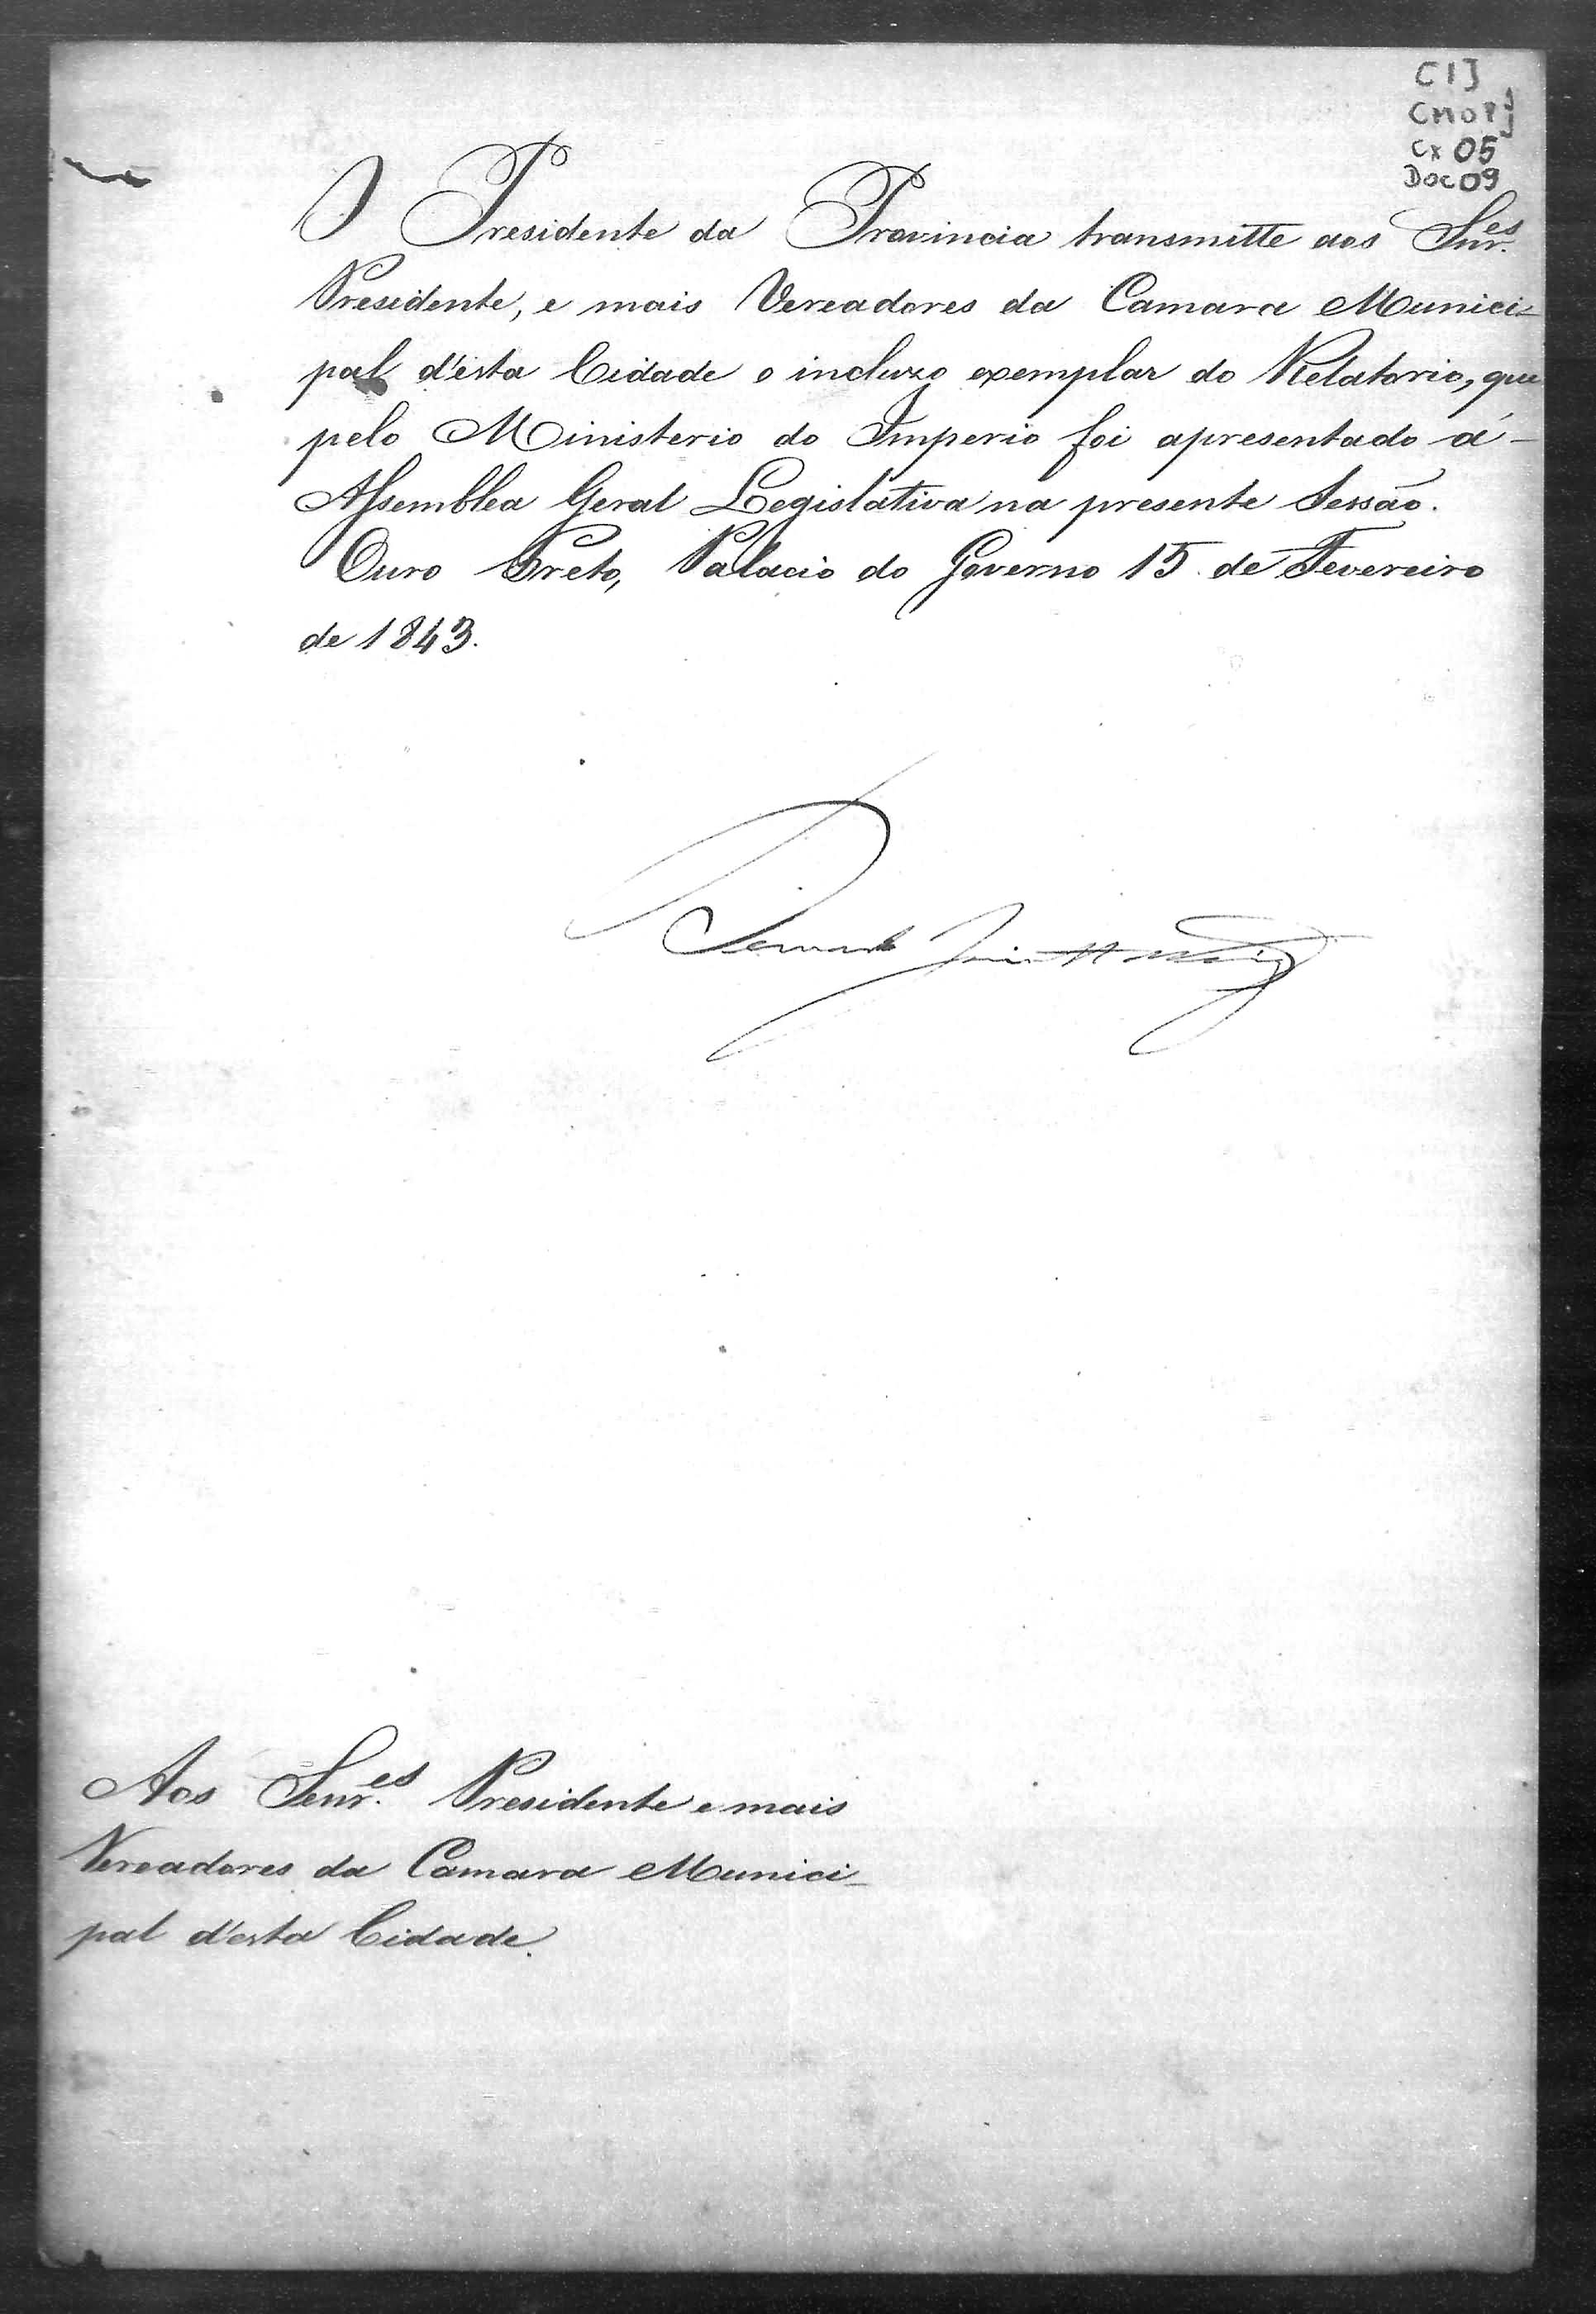 CIJ
CMOP
Cx 05
Doc 09
O Presidente da Provincia transmitte aos Snr.es
Presidente, e mais Vereadores da Camara Munici-
pal d'esta Cidade o incluzo exemplar do Relatorio, que
pelo Ministerio do Imperio foi apresentado á
Assemblea Geral Legislativa na presente Sessão.
Ouro Preto, Palacio do Governo 15 de Fevereiro
de 1843.
Bernardo
Aos Senr.es Presidente e mais
Vereadores da Camara Munici-
pal d'esta Cidade.